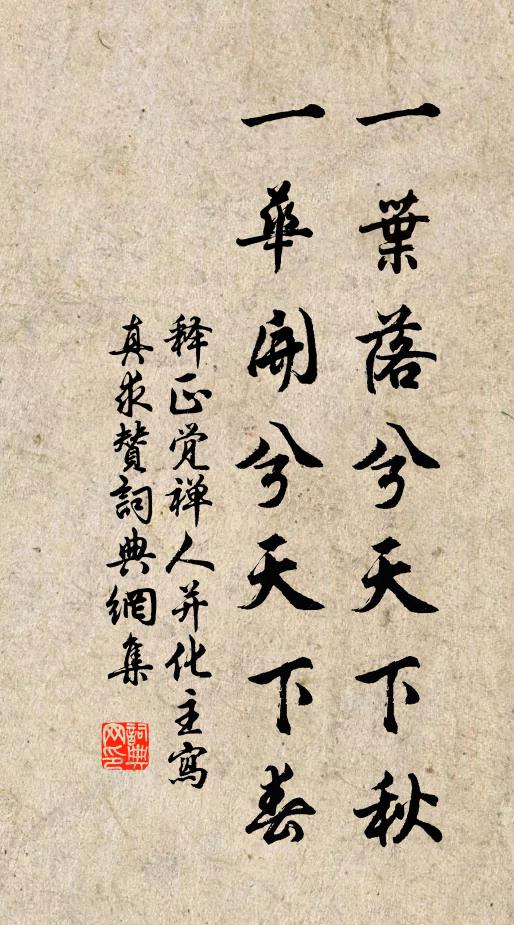 一葉落兮天下秋
一華開兮天下春
释正觉禅人并化主寫
真求贊詞典網集
詞典网印